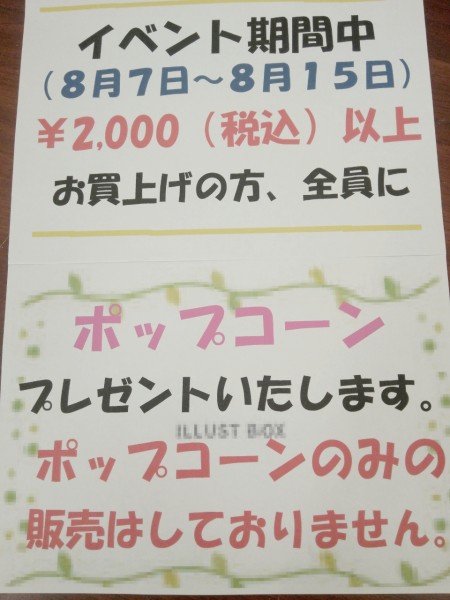 イベント期間中
（８月７日～８月１５日）
￥2,000（税込）以上
お買上げの方、全員に
ポップコーン
プレゼントいたします。
ILLUST BOX
ポップコーンのみの
販売はしておりません。